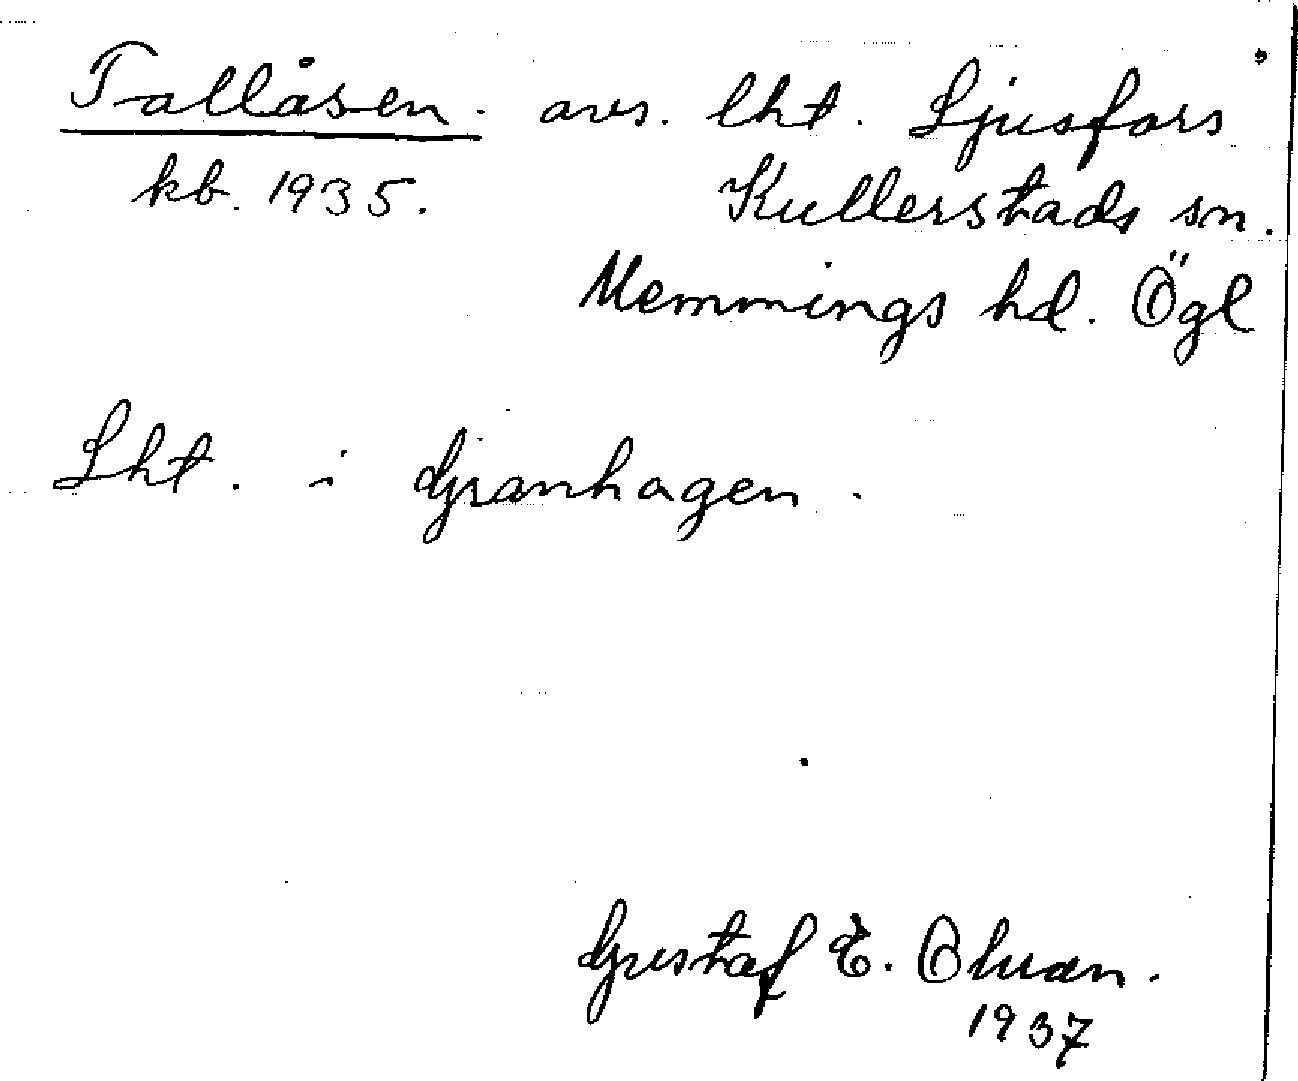 Tallåsen. avs. lht. Ljusfors
kb. 1935. Kullerstads sn.
Memmings hd. Ögl
Lht. i Granhagen.
Gustaf E.
1937